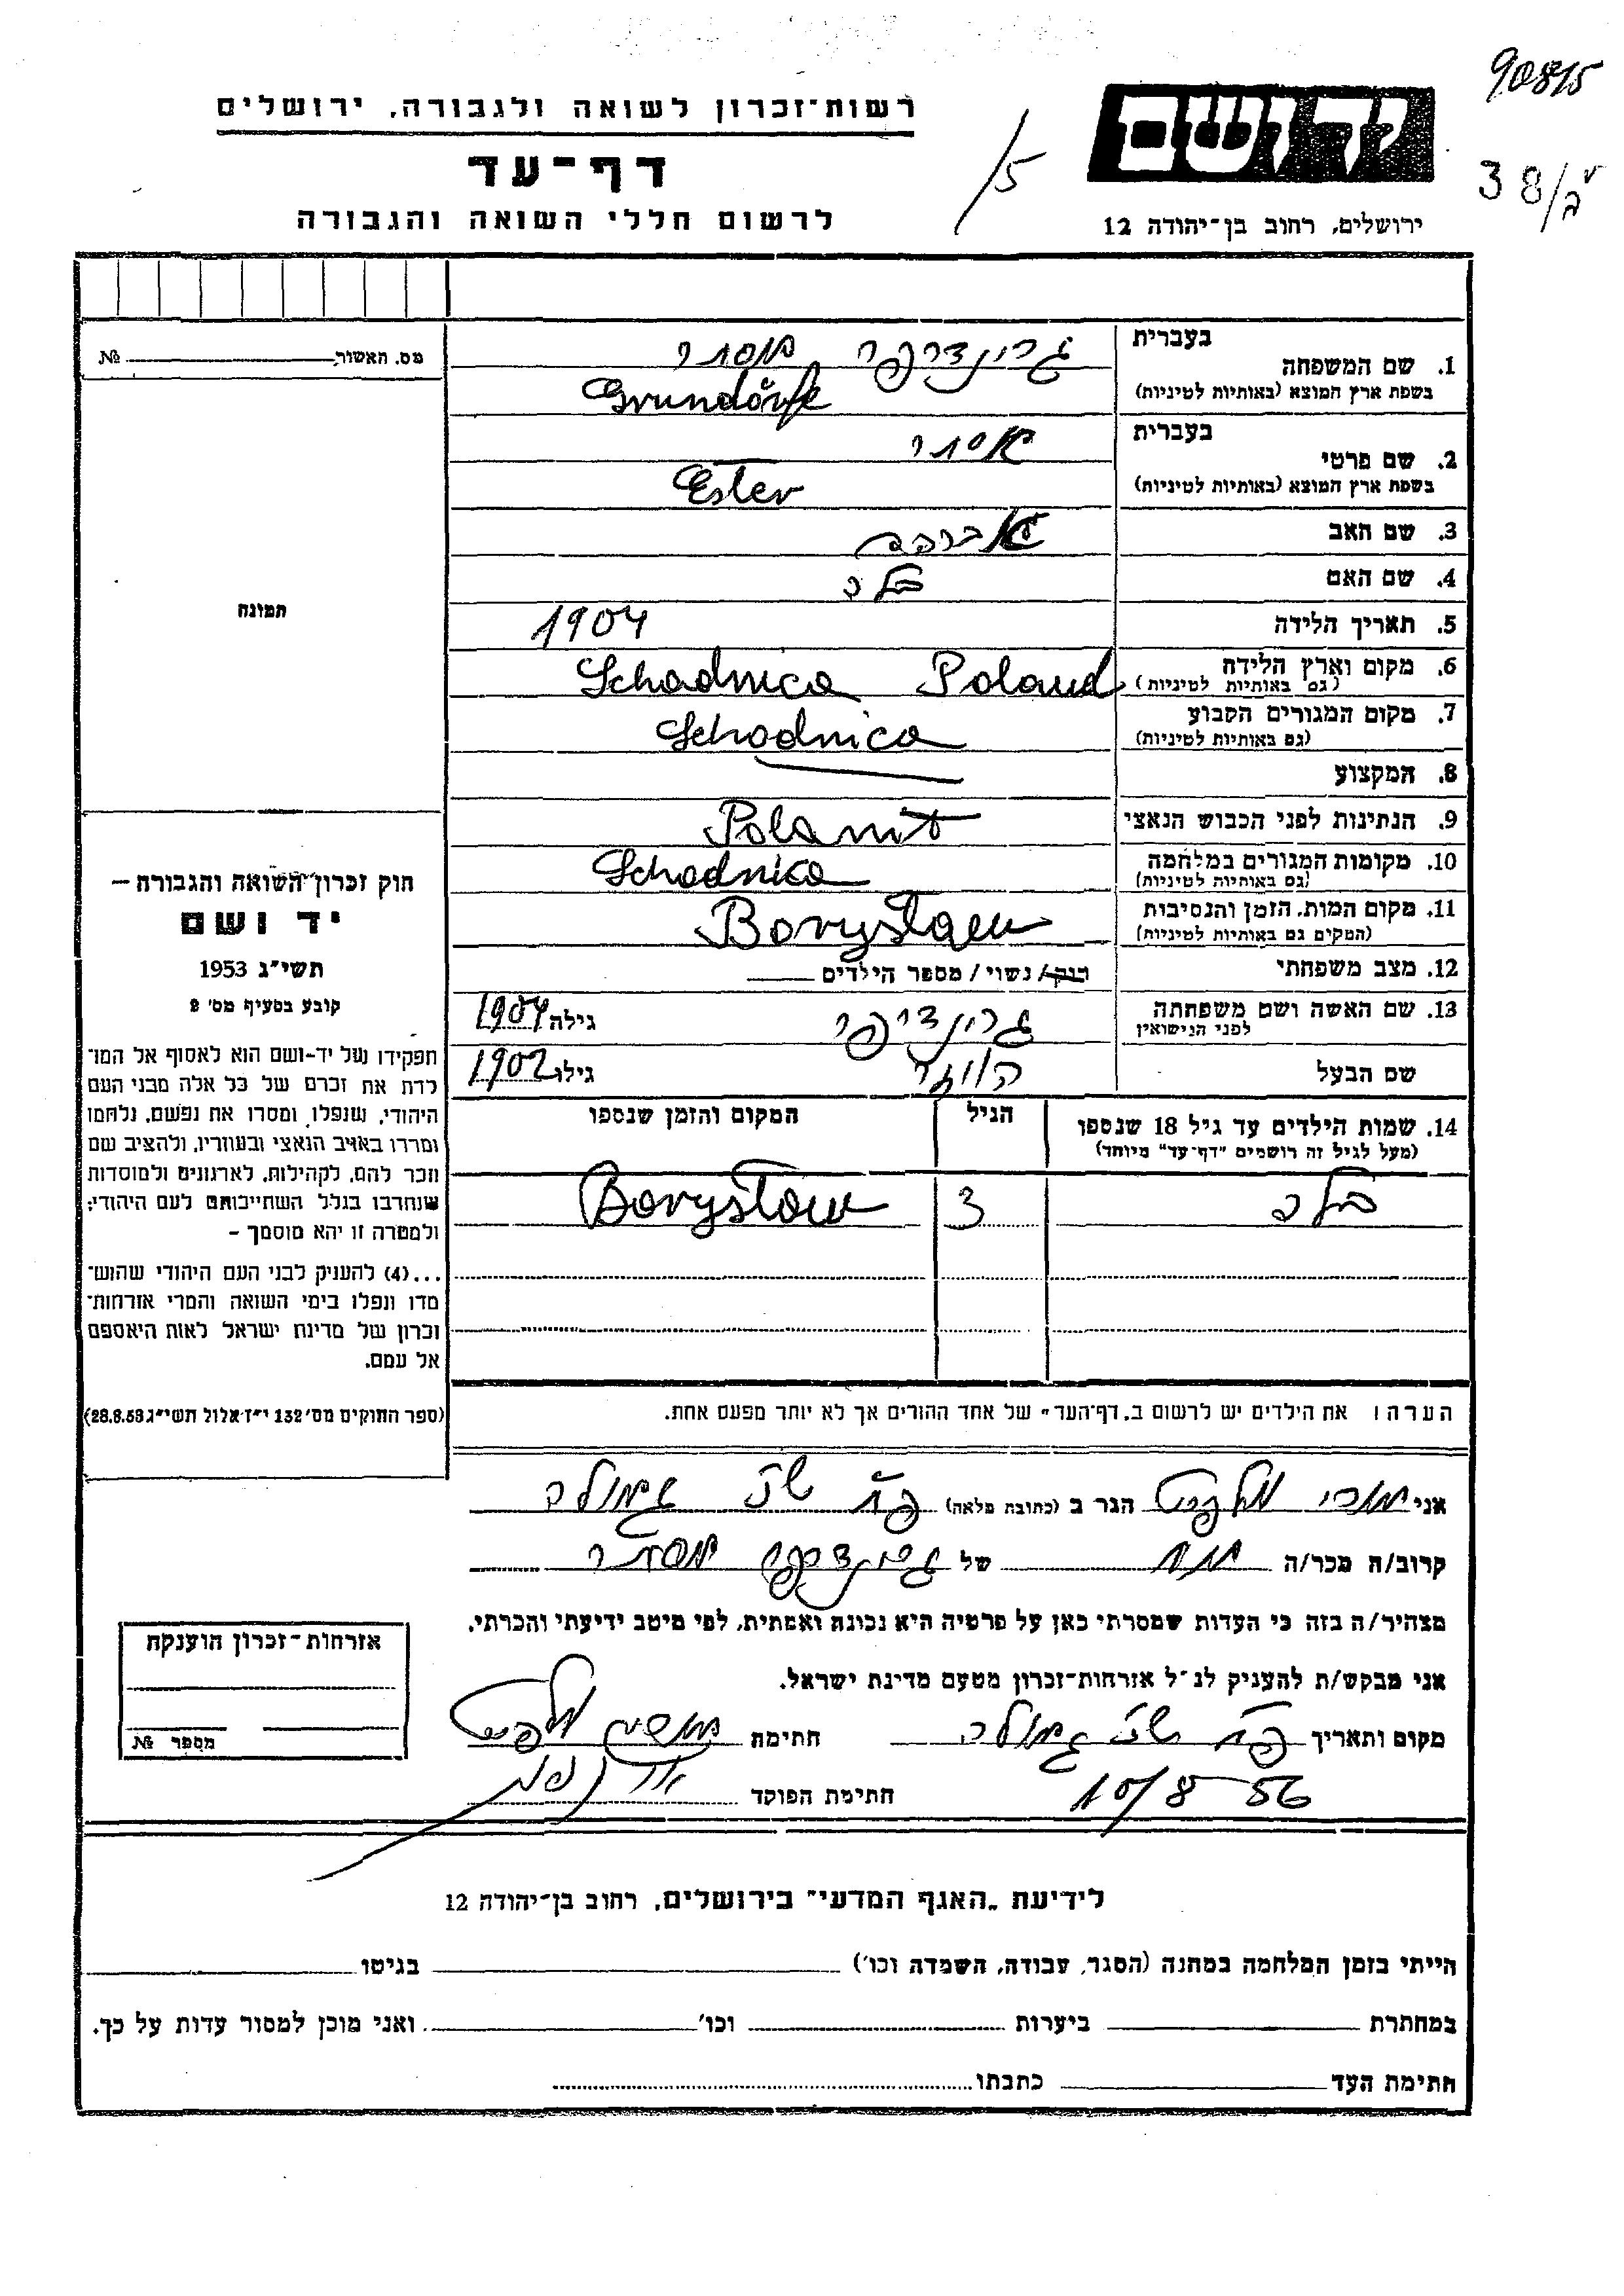 90815
38/ב
15
יד ושם
רשות־זכרון לשואה ולגבורה, ירושלים
דף־עד
לרשום חללי השואה והגבורה
ירושלים, רחוב בן־יהודה 12
מס. האשור № 
תמונה
1. שם המשפחה
בעברית גרינדרפר אסתר
בשפת ארץ המוצא (באותיות לטיניות) Grundörfe
2. שם פרטי
בעברית אסתר
בשפת ארץ המוצא (באותיות לטיניות) Ester
3. שם האב אברהם
4. שם האם
5. תאריך הלידה 1904
6. מקום וארץ הלידה Schodnica Poland
(גם באותיות לטיניות)
7. מקום המגורים הקבוע Schodnica
(גם באותיות לטיניות)
8. המקצוע
9. הנתינות לפני הכבוש הנאצי
10. מקומות המגורים במלחמה Schodnica
(גם באותיות לטיניות)
11. מקום המות, הזמן והנסיבות Borysław
(המקום גם באותיות לטיניות)
12. מצב משפחתי רווק / נשוי / מספר הילדים
13. שם האשה ושם משפחתה גילה 1904
לפני הנישואין
שם הבעל גילו 1902
14. שמות הילדים עד גיל 18 שנספו הגיל המקום והזמן שנספו
(מעל לגיל זה רושמים "דף־עד" מיוחד)
3 Borysław
הערה: את הילדים יש לרשום ב„דף־העד" של אחד ההורים אך לא יותר מפעם אחת.
חוק זכרון השואה והגבורה –
יד ושם
תשי"ג 1953
קובע בסעיף מס' 2
תפקידו של יד-ושם הוא לאסוף אל המו־
לדת את זכרם של כל אלה מבני העם
היהודי, שנפלו, ומסרו את נפשם, נלחמו
ומרדו באויב הנאצי ובעוזריו, ולהציב שם
וזכר להם, לקהילות, לארגונים ולמוסדות
שנחרבו בגלל השתייכותם לעם היהודי;
ולמטרה זו יהא מוסמך –
...(4) להעניק לבני העם היהודי שהוש־
מדו ונפלו בימי השואה והמרי אזרחות־
זכרון של מדינת ישראל לאות היאספם
אל עמם.
(ספר החוקים מס' 132 י"ז אלול תשי"ג 28.8.53)
אני הגר ב (כתובת מלאה)
קרוב/ה מכר/ה של אסתר
מצהיר/ה בזה כי העדות שמסרתי כאן על פרטיה היא נכונה ואמתית, לפי מיטב ידיעתי והכרתי.
אני מבקש/ת להעניק לנ"ל אזרחות־זכרון מטעם מדינת ישראל.
מקום ותאריך חתימת
10/8 56 חתימת הפוקד
אזרחות־זכרון הוענקה
מספר №
לידיעת „האגף המדעי" בירושלים, רחוב בן־יהודה 12
הייתי בזמן המלחמה במחנה (הסגר, עבודה, השמדה וכו') בגיטו
במחתרת ביערות וכו' ואני מוכן למסור עדות על כך.
חתימת העד כתבתו